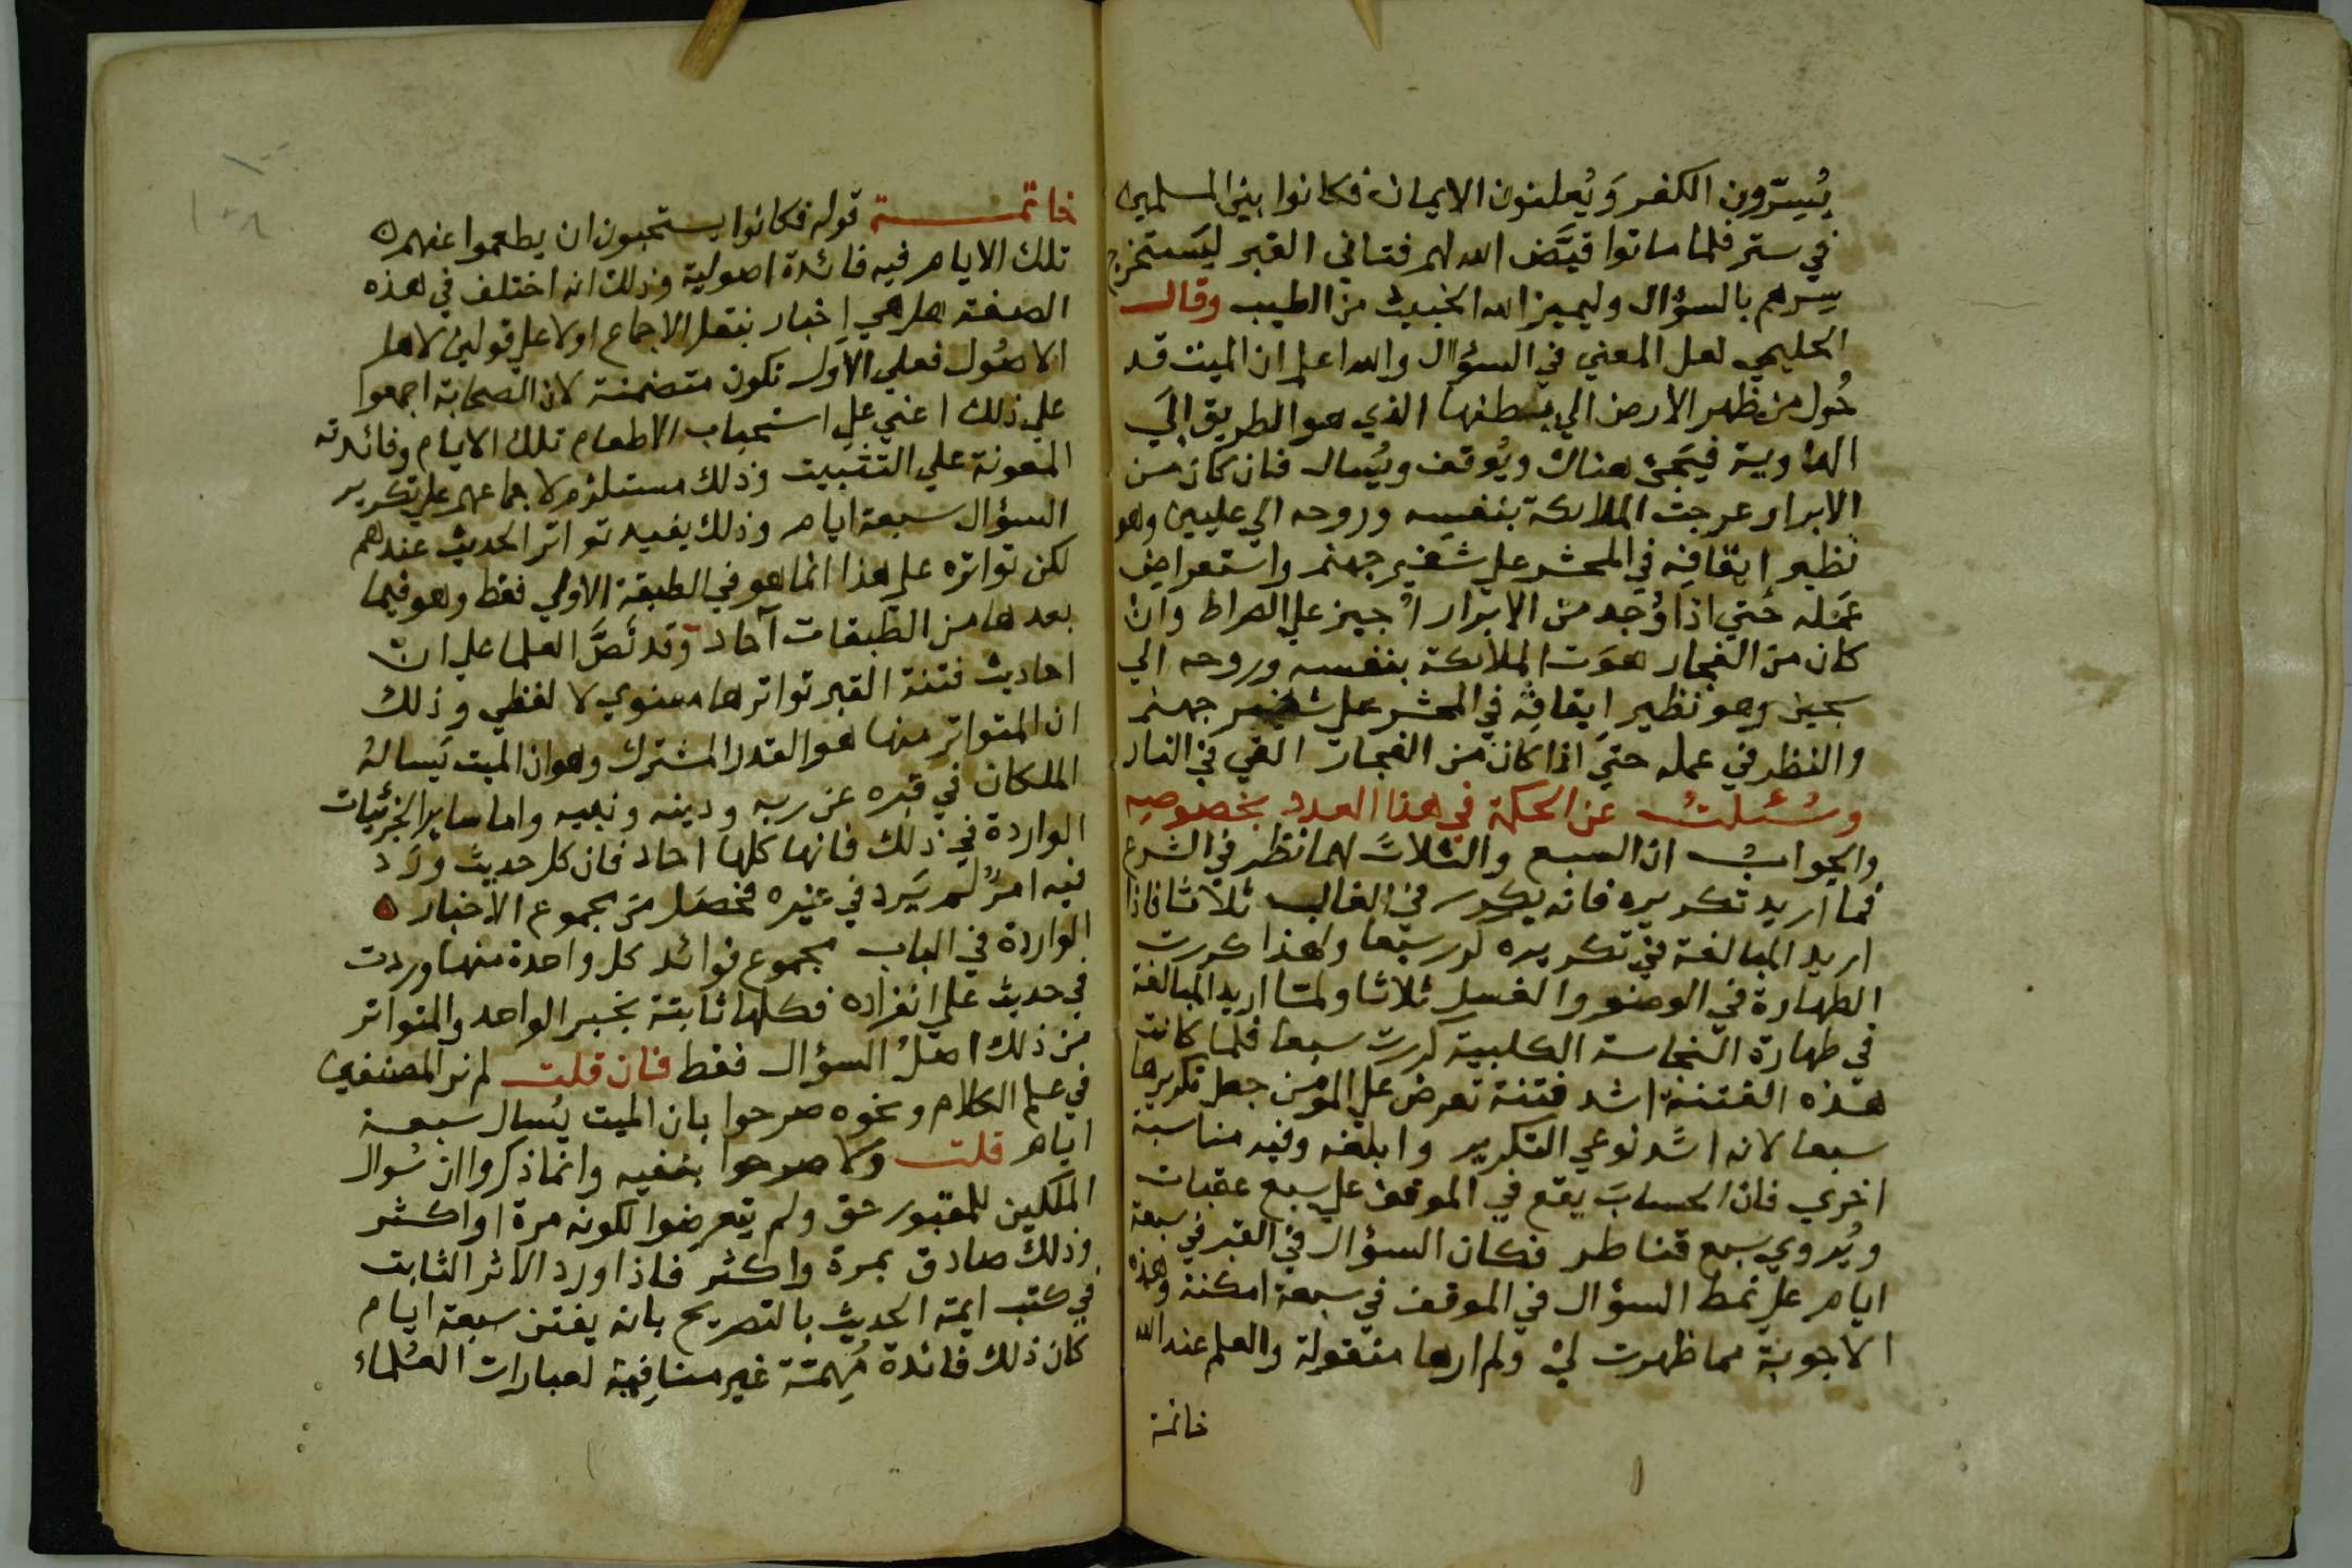 يُسِرّون الكفر وَيُعلنون الايمان فكانوا بين المسلمين
في ستر فلما ماتوا قيَّض الله لهم فتاني القبر ليَستخرج
سِرهم بالسؤال وليميز الله الخبيث من الطيب وقال
الحليمي لعل المعني في السؤال والله اعلم ان الميت قد
حُول من ظهر الارض الي بطنها الذي هو الطريق الي
الهاوية فيَجئ هناك ويُوقف ويُسال فان كان من
الابرار عرجت الملائكة بنفسه وروحه الي عليين وهو
نظير ايقافِه في المحشر علي شفير جهنم واستعراض
عَمَله حَتي اذا وُجد من الابرار اُجيز علي الصراط وان
كان من الفجار هوَت الملائكة بنفسه وروحه الي
سجين وهو نظير اِيقافِه في المحشر علي شفير جهنم
والنظر في عمله حتي اذا كان من الفجار القي في النار
وسُئلتُ عن الحكمة في هذا العدد بخصوصِه
والجوابُ ان السبع والثلاث لهما نظر في الشرع
فما اريد تكريره فانه يكرر في الغالب ثلاثا فاذا
اريد المبالغة في تكريره كرر سبعا ولهذا كررت
الطهارة في الوضو والغسل ثلاثا ولما اريد المبالغة
في طهارة النجاسة الكلبية كررت سبعا فلما كانت
هذه الفتنة اشد فتنة تعرض علي المؤمن جعل تكريرها
سبعا لانه اشد نوعي التكرير وابلغه وفيه مناسبة
اخري فان الحسابَ يقع في الموقف علي سبع عقبات
ويُروي سبع قناطر فكان السؤال في القبر في سبعة
ايام علي نمط السؤال في الموقف في سبعة امكنة وهذه
الاجوبة مما ظهرت لي ولم ارها منقولة والعلم عند الله
خاتمة
خاتمة قوله فكانوا يستحبون ان يطعموا عنهم
تلك الايام فيه فائدة اصولية وذلك انه اختلف في هذه
الصفة هل هي اِخبار بنقل الاجماع او لا علي قولين لاهل
الاصُول فعلي الاَول تكون متضمنة لان الصحابة اجمعوا
علي ذلك اعني علي استحباب الاطعام تلك الايام وفائدته
المعونة علي التثبيت وذلك مستلزم لاجماعهم علي تكرير
السؤال سبعة ايام وذلك يفيد تواتر الحديث عندهم
لكن تواتره علي هذا انما هو في الطبقة الاولي فقط وهو فيما
بعدها من الطبقات آحاد وَقد نَصَّ العلما علي ان
احاديث فتنة القبر تواترها معنوي لا لفظي وذلك
ان المتواتر منها هو القدر المشترك وهو ان الميت يَسالهُ
الملكان في قبره عن ربه ودينه ونبيه واما ساير الجزئيات
الواردة في ذلك فانها كلها احاد فان كل حديث ورَد
فيه امرٌ لَم يَرد في غيره فحصَل من مجموع الاخبار
الواردة في الباب مجموع فوائد كل واحدة منها وردت
في حديث علي انفراده فكلها ثابتة بخبر الواحد والمتواتر
من ذلك اصلُ السؤال فقط فان قلت لم نر المصنفين
في علم الكلام ونحوه صرحوا بان الميت يُسال سبعة
ايام قلت ولا صرحوا بنفيه وانما ذكروا ان سُوال
الملكين للمقبور حق ولم يتعرضوا لكونه مرة او اكثر
وذلك صادق بمرة واكثر فاذا ورد الاثر الثابت
في كتب ايمة الحديث بالتصريح بانه يفتن سبعة ايام
كان ذلك فائدة مُهِمَّة غير منافِية لعبارات العُلماء